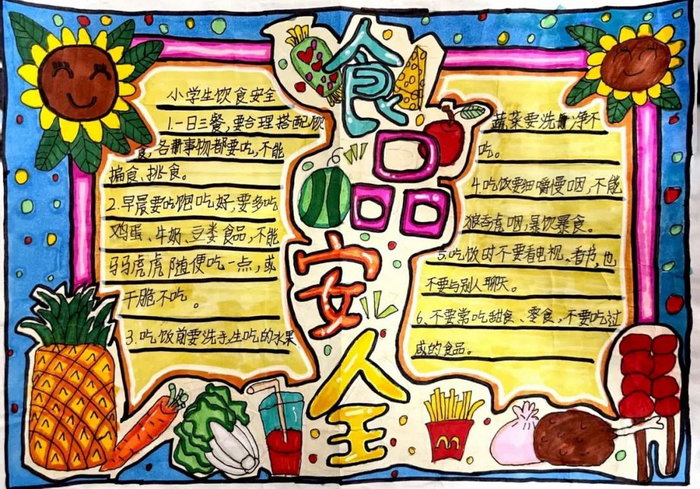 食品安全
小学生饮食安全
1.一日三餐,要合理搭配饮
食,各种事物都要吃,不能
偏食、挑食。
2.早晨要吃饱吃好,要多吃
鸡蛋、牛奶、豆类食品,不能
马马虎虎随便吃一点,或
干脆不吃。
3.吃饭前要洗手,生吃的水果
蔬菜要洗净不
吃。
4.吃饭要细嚼慢咽,不能
狼吞虎咽,暴饮暴食。
5.吃饭时不要看电视、看书,也
不要与别人聊天。
6、不要常吃甜食、零食,不要吃过
咸的食品。